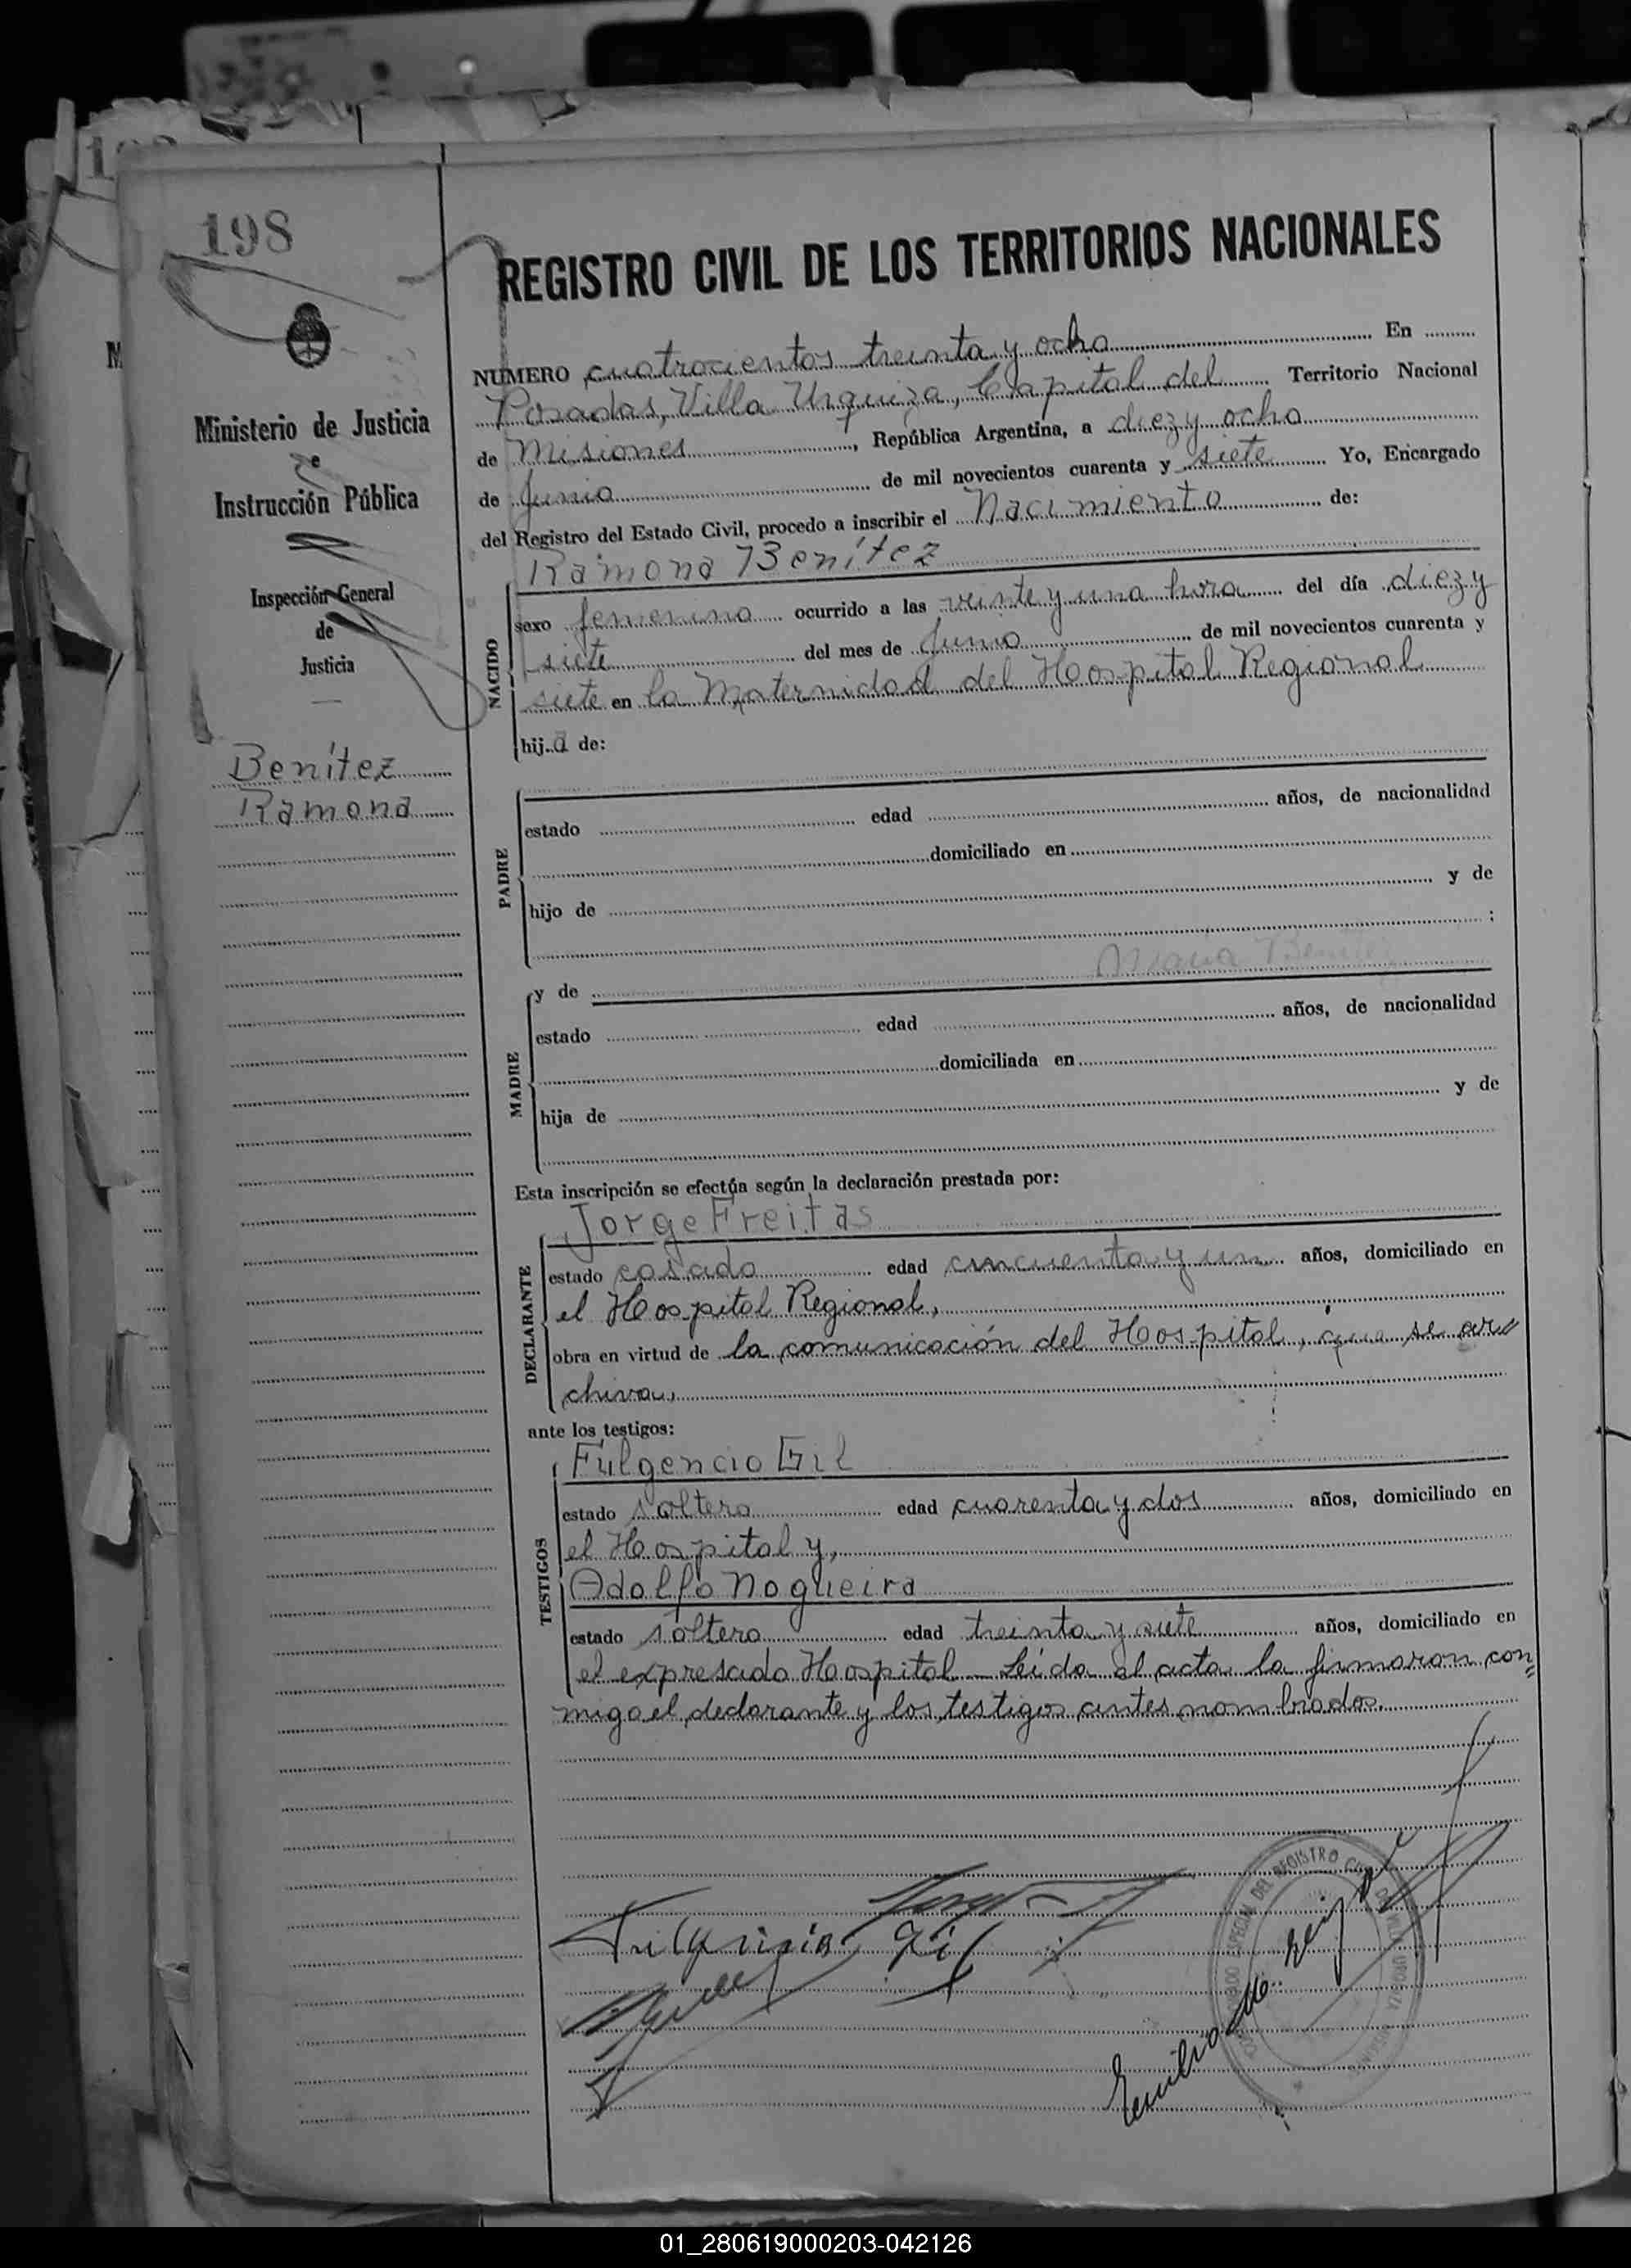 198
REGISTRO CIVIL DE LOS TERRITORIOS NACIONALES
Ministerio de Justicia
e
Instrucción Pública
Inspección General
de
Justicia
Benítez
Ramona
NUMERO cuatrocientos treinta y ocho En
Posadas, Villa Urquiza, Capital del Territorio Nacional
de Misiones, República Argentina, a diez y ocho
de Junio de mil novecientos cuarenta y siete Yo, Encargado
del Registro del Estado Civil, procedo a inscribir el Nacimiento de:
NACIDO
Ramona Benítez
sexo femenino ocurrido a las veinte y una hora del día diez y
siete del mes de Junio de mil novecientos cuarenta y
siete en la Maternidad del Hospital Regional
hija de:
PADRE
estado edad años, de nacionalidad
domiciliado en
hijo de y de
;
MADRE
María Benítez
y de
estado edad años, de nacionalidad
domiciliada en
hija de y de
Esta inscripción se efectúa según la declaración prestada por:
DECLARANTE
Jorge Freitas
estado casado edad cincuenta y un años, domiciliado en
el Hospital Regional,
obra en virtud de la comunicación del Hospital, que se ar
chiva,
ante los testigos:
TESTIGOS
Fulgencio Gil
estado soltero edad cuarenta y dos años, domiciliado en
el Hospital y,
Adolfo Nogueira
estado soltero edad treinta y siete años, domiciliado en
el expresado Hospital - Leída el acta la firmaron con=
migo el declarante y los testigos antes nombrados.
Fulgencio Gil
DEL REGISTRO
01_280619000203-042126